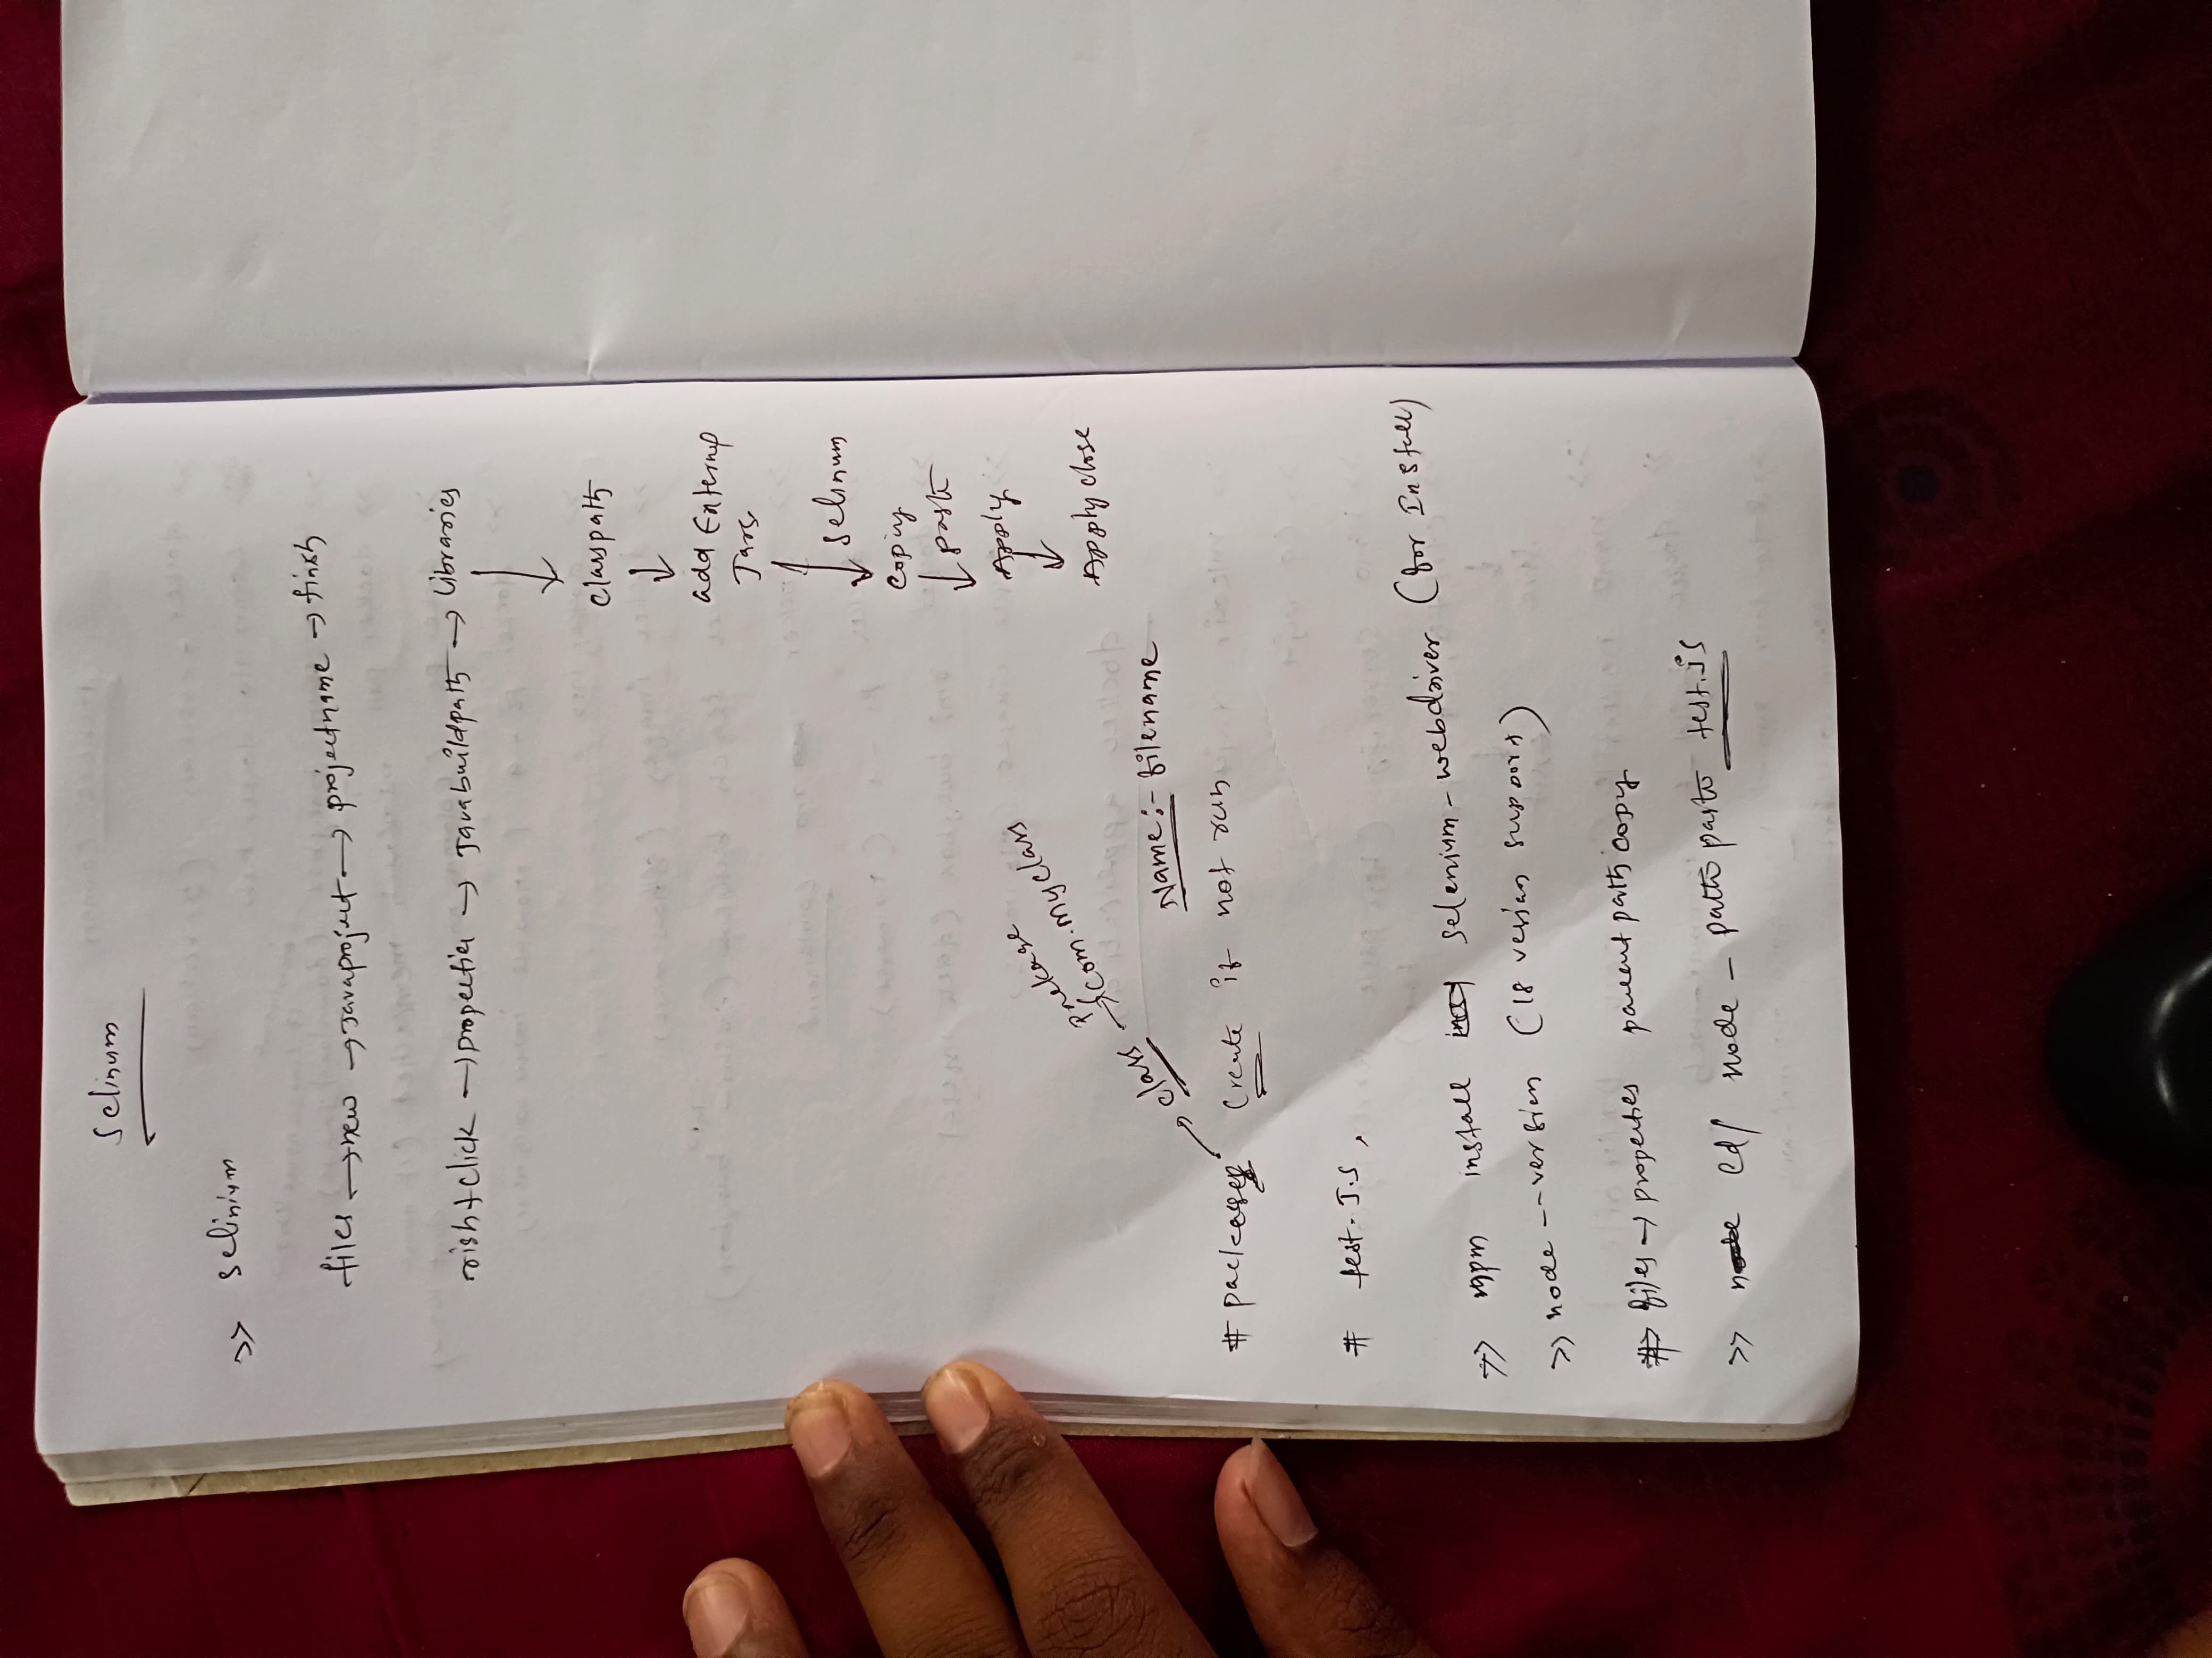 Selinum
>> Selinium
files → new → Javaproject → projectname → finish
right click → properties → Javabuildpath → Libraries
↓
classpath
↓
add External
Jars
↓
Selinum
↓
Coping
↓ paste
Apply
↓
Apply close
package
com.myclass
# packages → class Name:- filename
Create if not run
# test.JS,
>> npm install selenium-webdriver (for Install)
>> node --version (18 version support)
#> files → properties parent path copy
>> cd/ node - path paste test.js